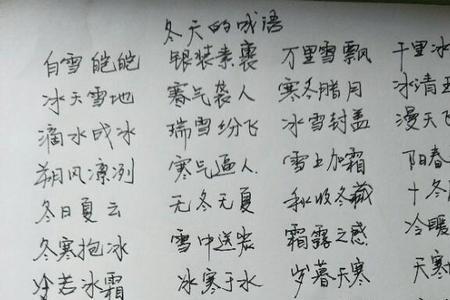 冬天的成语
白雪皑皑 银装素裹 万里雪飘 千里冰
冰天雪地 寒气袭人 寒冬腊月 冰清玉
滴水成冰 瑞雪纷飞 冰雪封盖 漫天飞
朔风凛冽 寒气逼人 雪上加霜 阳春
冬日夏云 无冬无夏 秋收冬藏 十冬
冬寒抱冰 雪中送炭 霜露之感 冷暖
冷若冰霜 冰寒于水 岁暮天寒 天寒